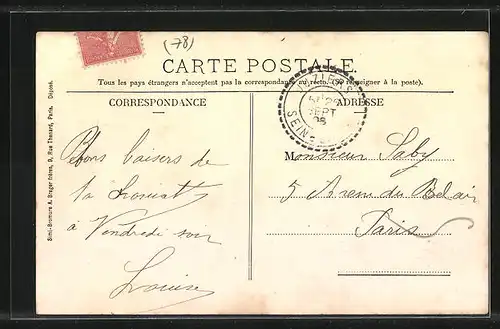 (78)
CARTE POSTALE
Tous les pays étrangers n'acceptent pas la correspondance au recto. (Se renseigner à la poste).
CORRESPONDANCE
ADRESSE
SEPT
SEINE
Bons baisers de
ta
à Vendredi soir
Louise
Monsieur Saby
5 Avenue du Bel air
Paris
Simi-Bromure A. Breger frères, 9, Rue Thénard, Paris. Déposé.